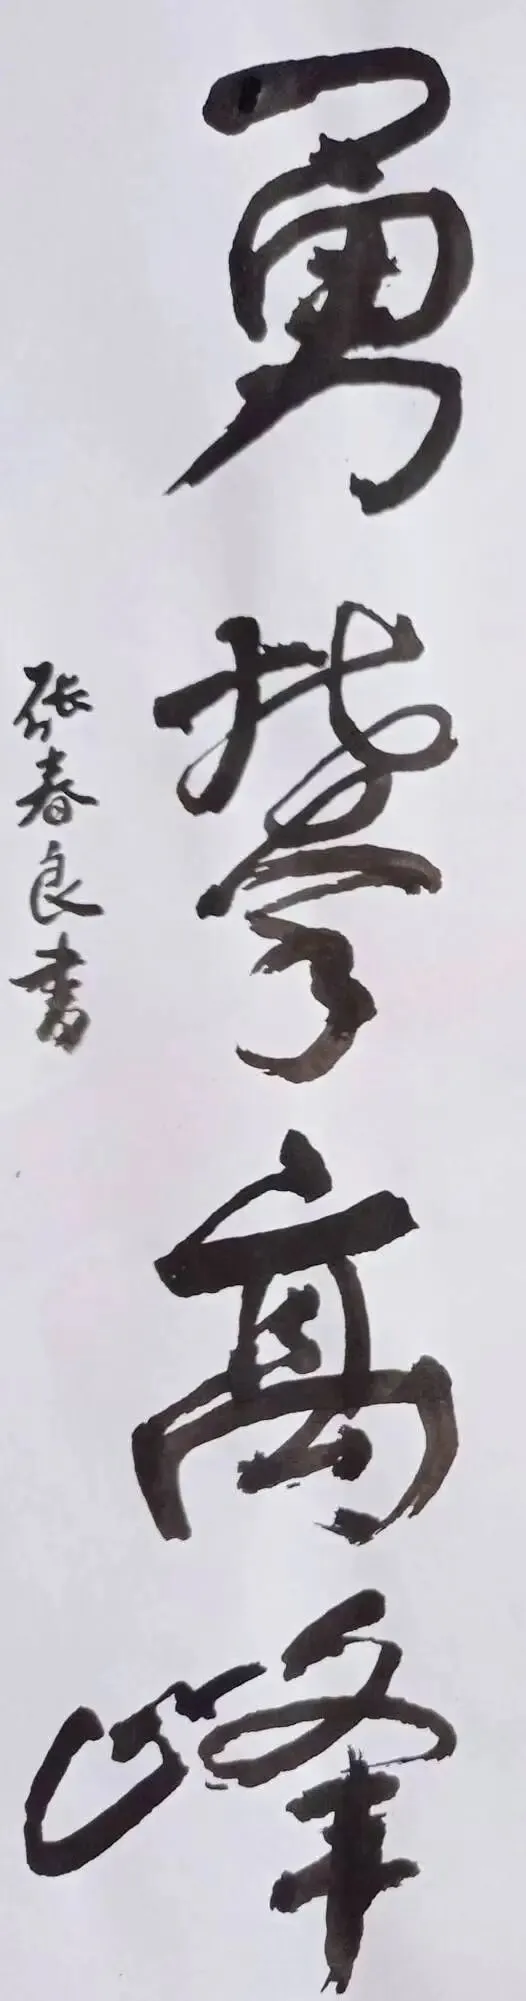 勇攀高峰
张春良書